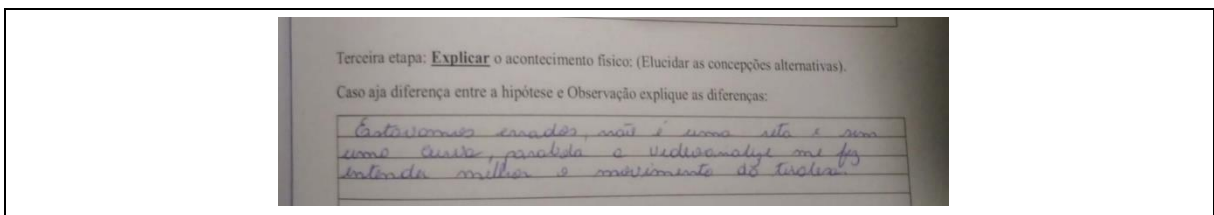 Terceira etapa: Explicar o acontecimento físico: (Elucidar as concepções alternativas).
Caso aja diferença entre a hipótese e Observação explique as diferenças:
Estavamos errados, não é uma reta e sim
uma curva, parabola a videoanalise me fez
entender melhor o movimento do